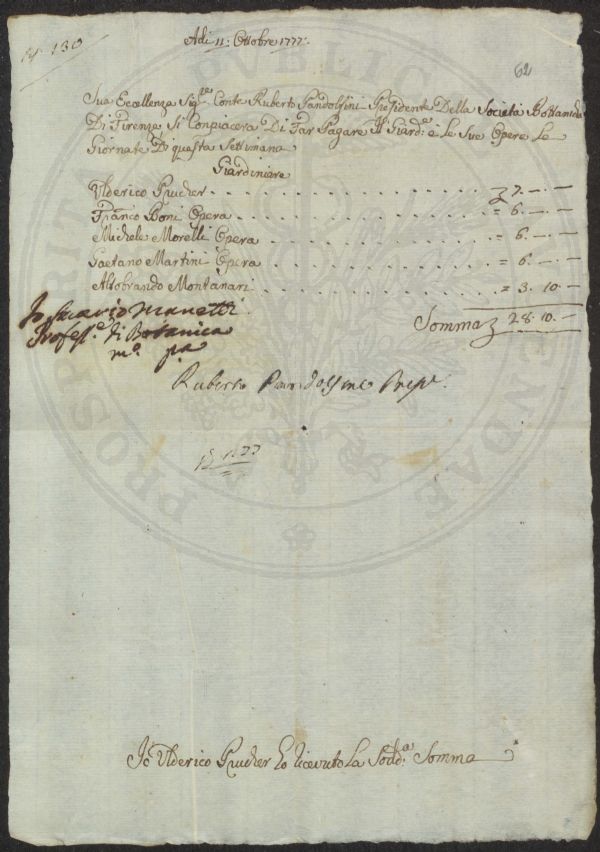 N. 130
Adi 11: Ottobre 1777:
62
Sua Eccellenza Sig.re Conte Ruberto Pandolfini Presidente Della Società Bottanicha
Di Firenze Si Conpiacera Di Far Pagare Il Giard.e e le Sue Opere Le
Giornate Di questa Settimana
Giardiniere
Ulderico Prucher 7. — . —
Franco Boni Opera = 6. — . —
Michele Morelli Opera = 6. — . —
Gaetano Martini Opera = 6. — . —
Aldobrando Montanari = 3. 10. —
Somma 28. 10. —
Io Saverio Manetti
Profes.e di Botanica
m.o p.a
Ruberto Pandolfini Presi.
Io Ulderico Prucher ho ricevuto La Sodd.a Somma
PUBLICAE
PROSPERITATI AUGENDAE